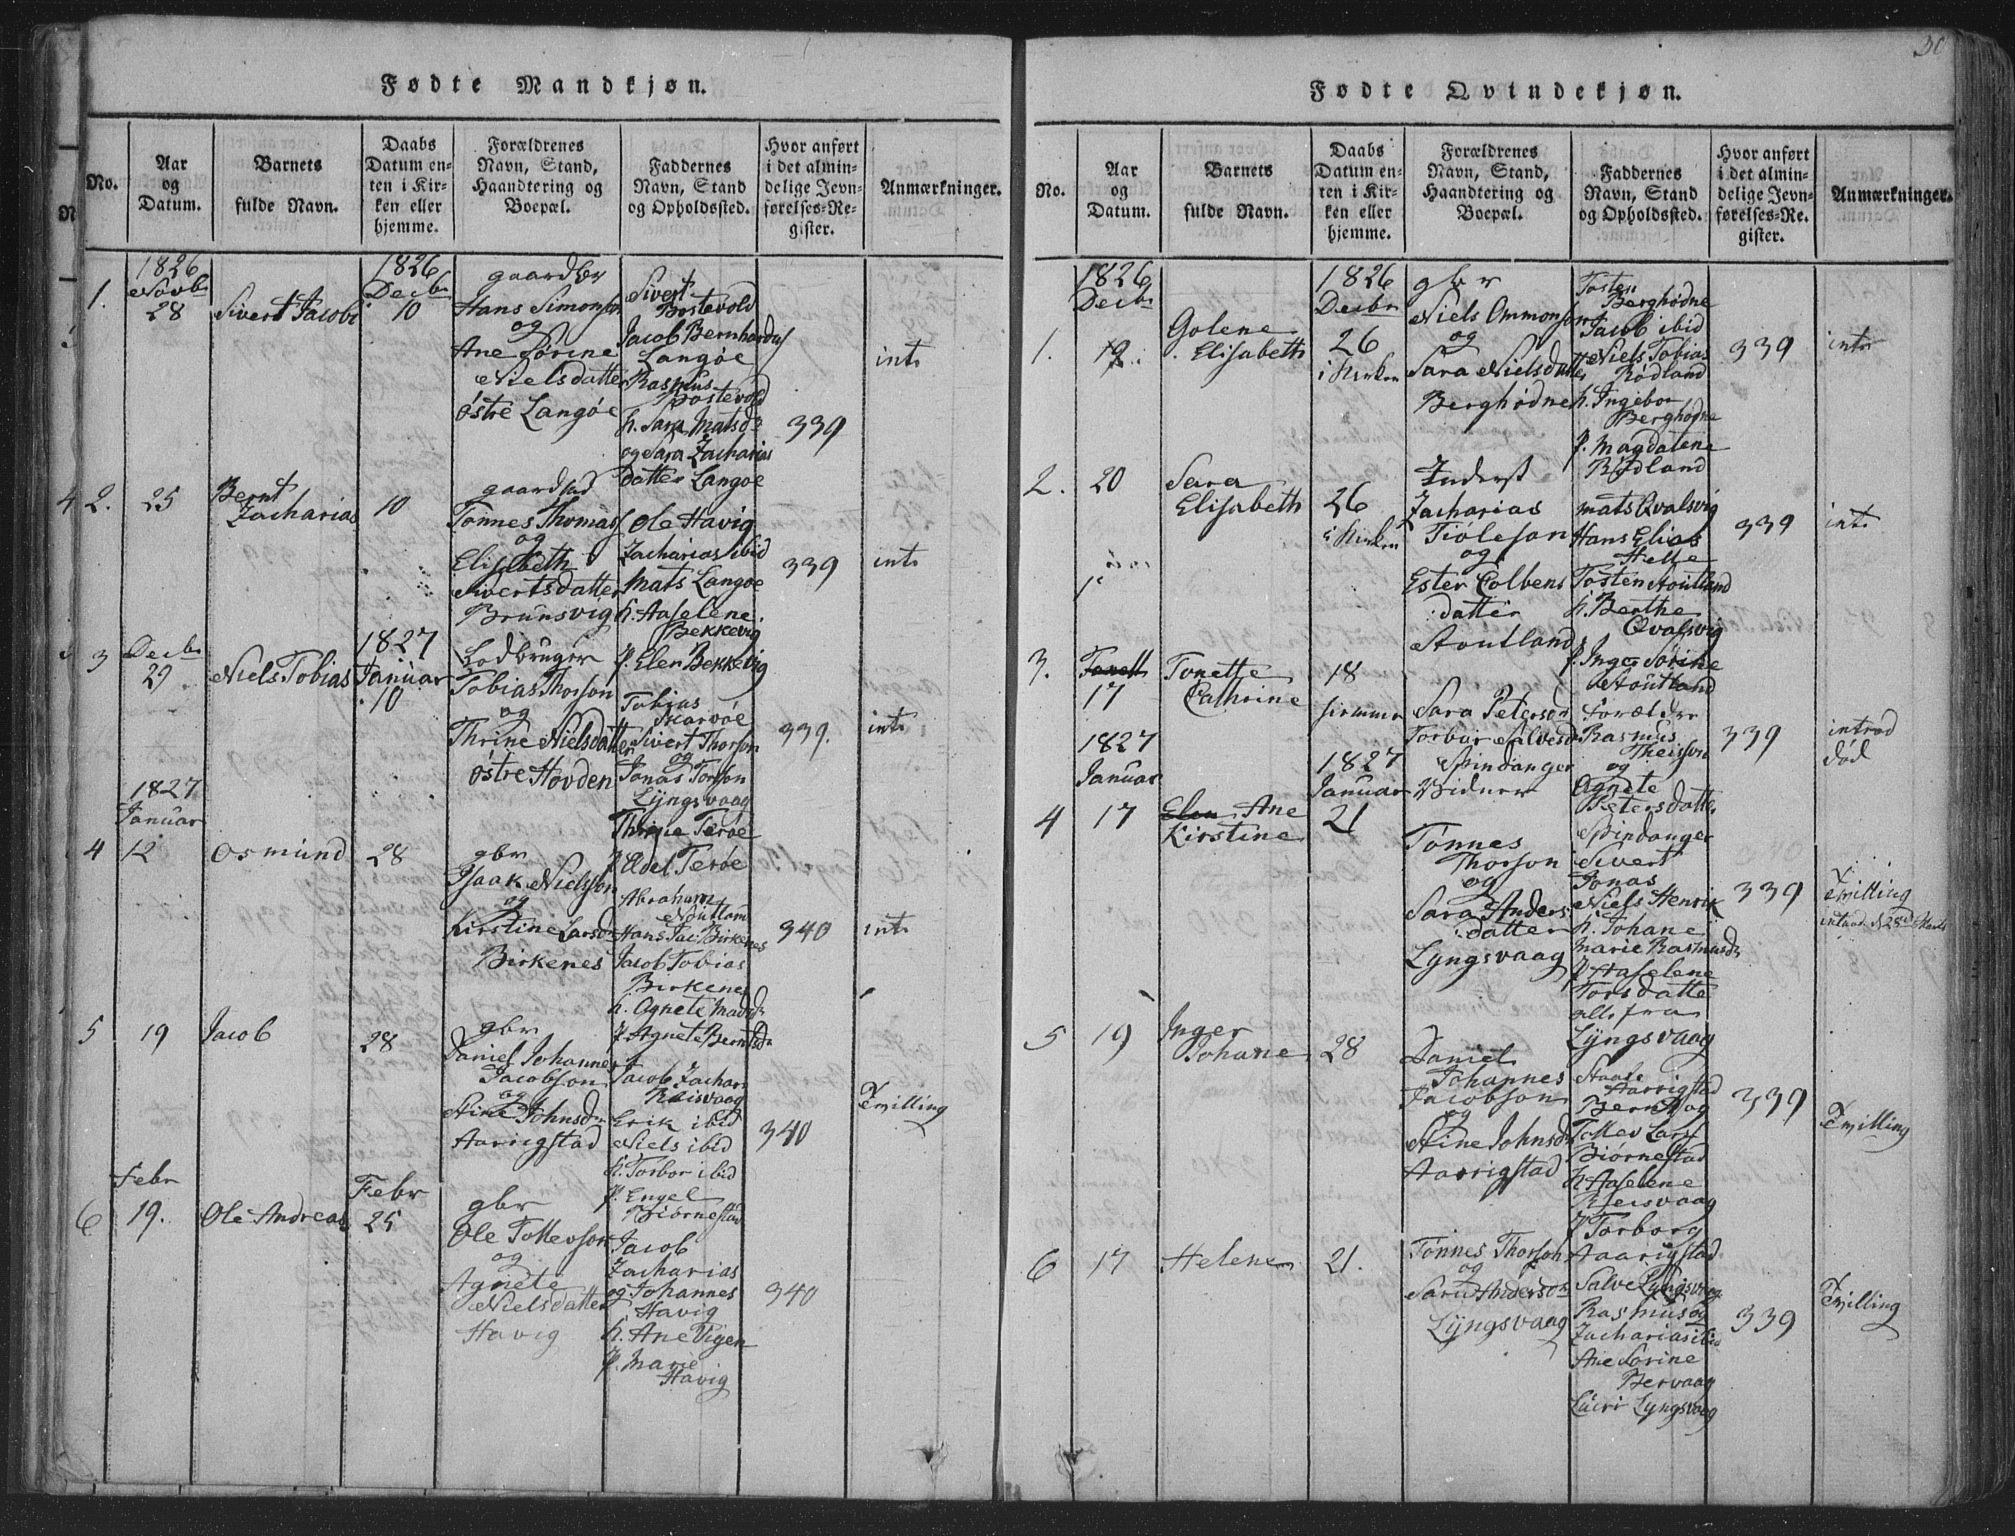 Fødte Mandkjøn.
No.
Aar
og
Datum.
Barnets
fulde Navn.
Daabs
Datum en-
ten i Kir-
ken eller
hjemme.
Forældrenes
Navn, Stand,
Haandtering og
Boepæl.
Faddernes
Navn, Stand
og Opholdssted.
Hvor anført
i det almin-
delige Jevn-
førelses-Re-
gister.
Anmærkninger.
1.
1826
Novbr
28
Sivert Jacob
1826
Decbr
10
gaardbr
Hans Simonson
og
Ane Sørine
Nielsdatter
østre Langøe
Sivert
Postevold
Jacob Bernhardus
Langøe
Rasmus
Postevold
h. Sara Matsd
og Sara Zacharias
datter Langøe
339
intr
2.
25
Bernt
Zacharias
10
Tønnes Thomas
og
Elisabeth
Sivertsdatter
Brunsvig
Ole Havig
Zacharias ibid
Mats Langøe
h. Aaselene
Bekkevig
p. Elen Bekkevig
339
intr
3
Decbr
29
Niels Tobias
1827
Januar
10
Lodbruger
Tobias Thorson
og
Thrine Nielsdatter
østre Hovden
Tobias
Skarvøe
Sivert Thorson
og
Jonas Torson
Lÿngsvaag
Thrine Terøe
p. Edel Terøe
339.
intr
1827
Januar
4
12
Osmund
28
gbr
Isaak Nielsson
og
Kirstine Larsd
Birkenes
Abraham
Hans Jac: Birkenes
Jacob Tobias
Birkenes
h. Agnete Madsd
p. Agnete Berntsd
340
intr
5
19
Jacob
28
gbr
Daniel Johannes
Jacobson
og
Stine Johnsd
Aarrigstad
Jacob Zachar
Reisvaag
Erik ibid
Niels ibid
h. Torbor ibid
p. Engel
Biørnestad
340
Tvilling
Febr
6
19.
Ole Andreas
Febr
25
gbr
Ole Tollevson
og
Agnete
Nielsdatter
Havig
Jacob
Zacharias
og Johannes
Havig
h. Ane Vigen
p. Marie
Havig
340
30
Fødte Qvindekjøn.
No.
Aar
og
Datum.
Barnets
fulde Navn.
Daabs
Datum en-
ten i Kir-
ken eller
hjemme.
Forældrenes
Navn, Stand,
Haandtering og
Boepæl.
Faddernes
Navn, Stand
og Opholdssted.
Hvor anført
i det almin-
delige Jevn-
førelses-Re-
gister.
Anmærkninger.
1826
Decbr
1.
19
Golene
Elisabeth
1826
Decbr
26
i Kirken
gbr
Niels Ommonson
og
Sara Nielsdatter
Berghødne
Tosten
Berghødne
Jacob ibid
Niels Tobias
Rødland
h. Ingebor
Berghødne
p. Magdalene
Rødland
339
intr
2.
20
Sara
Elisabeth
26
i Kirken
Inderst
Zacharias
Tiøleson
og
Ester Colbens
datter
Stoutland
Mats Qvalsvig
Hans Elias
Helle
Tosten Stoutland
h. Berthe
Qvalsvig
p. Inger Sørine
Stoutland
339
intr
3.
17
Tonette
Cathrine
18
hiemme
Sara Peterson
Torbor Salvesd
Spindanger
Forældre
Rasmus
Theisson
og
Agnete
Petersdatter
Spindanger
339
introd
død
1827
Januar
4
17
Elen Ane
Kirstine
1827
Januar
21
Tønnes
Thorson
og
Sara Anders
datter
Lÿngsvaag
Sivert
Jonas
Niels Henrik
h. Johane
Marie Rasmusd
p Aaselene
Torsdatte
alle fra
Lÿngsvaag
339
Tvilling
5
19
Inger
Johane
28
Daniel
Johannes
Jacobson
og
Stine Johnsd
Aarrigstad
Aarrigstad
Bernt og
Tollev Lars
Biørnestad
h Aaselene
Reisvaag
p Torborg
Aarrigstad
339
Tvilling
6
17
Helene
21.
Tønnes Thorson
og
Sara Anderson
Lÿngsvaag
Salve Lyngsvaag
Rasmus og
Zacharias ibid
Ane Sørine
Bervaag
Lyngsvaag
339
Tvilling